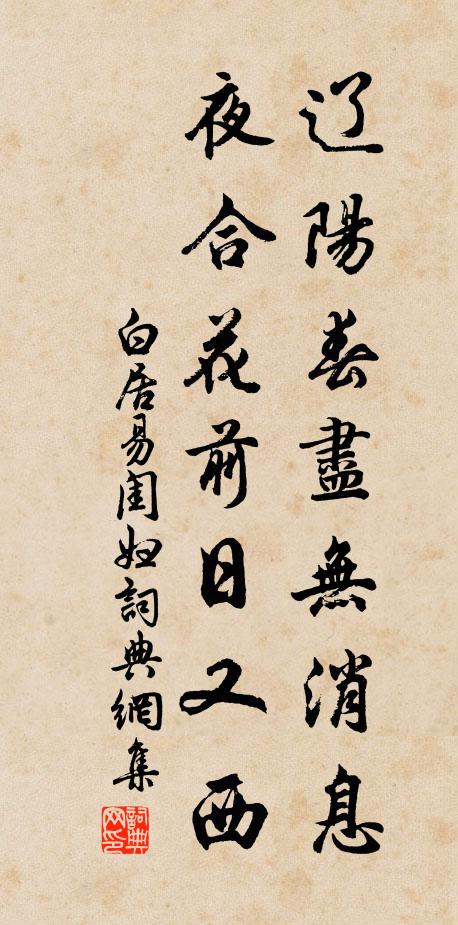 辽陽春盡無消息
夜合花前日又西
白居易閨婦詞典網集
詞典网印